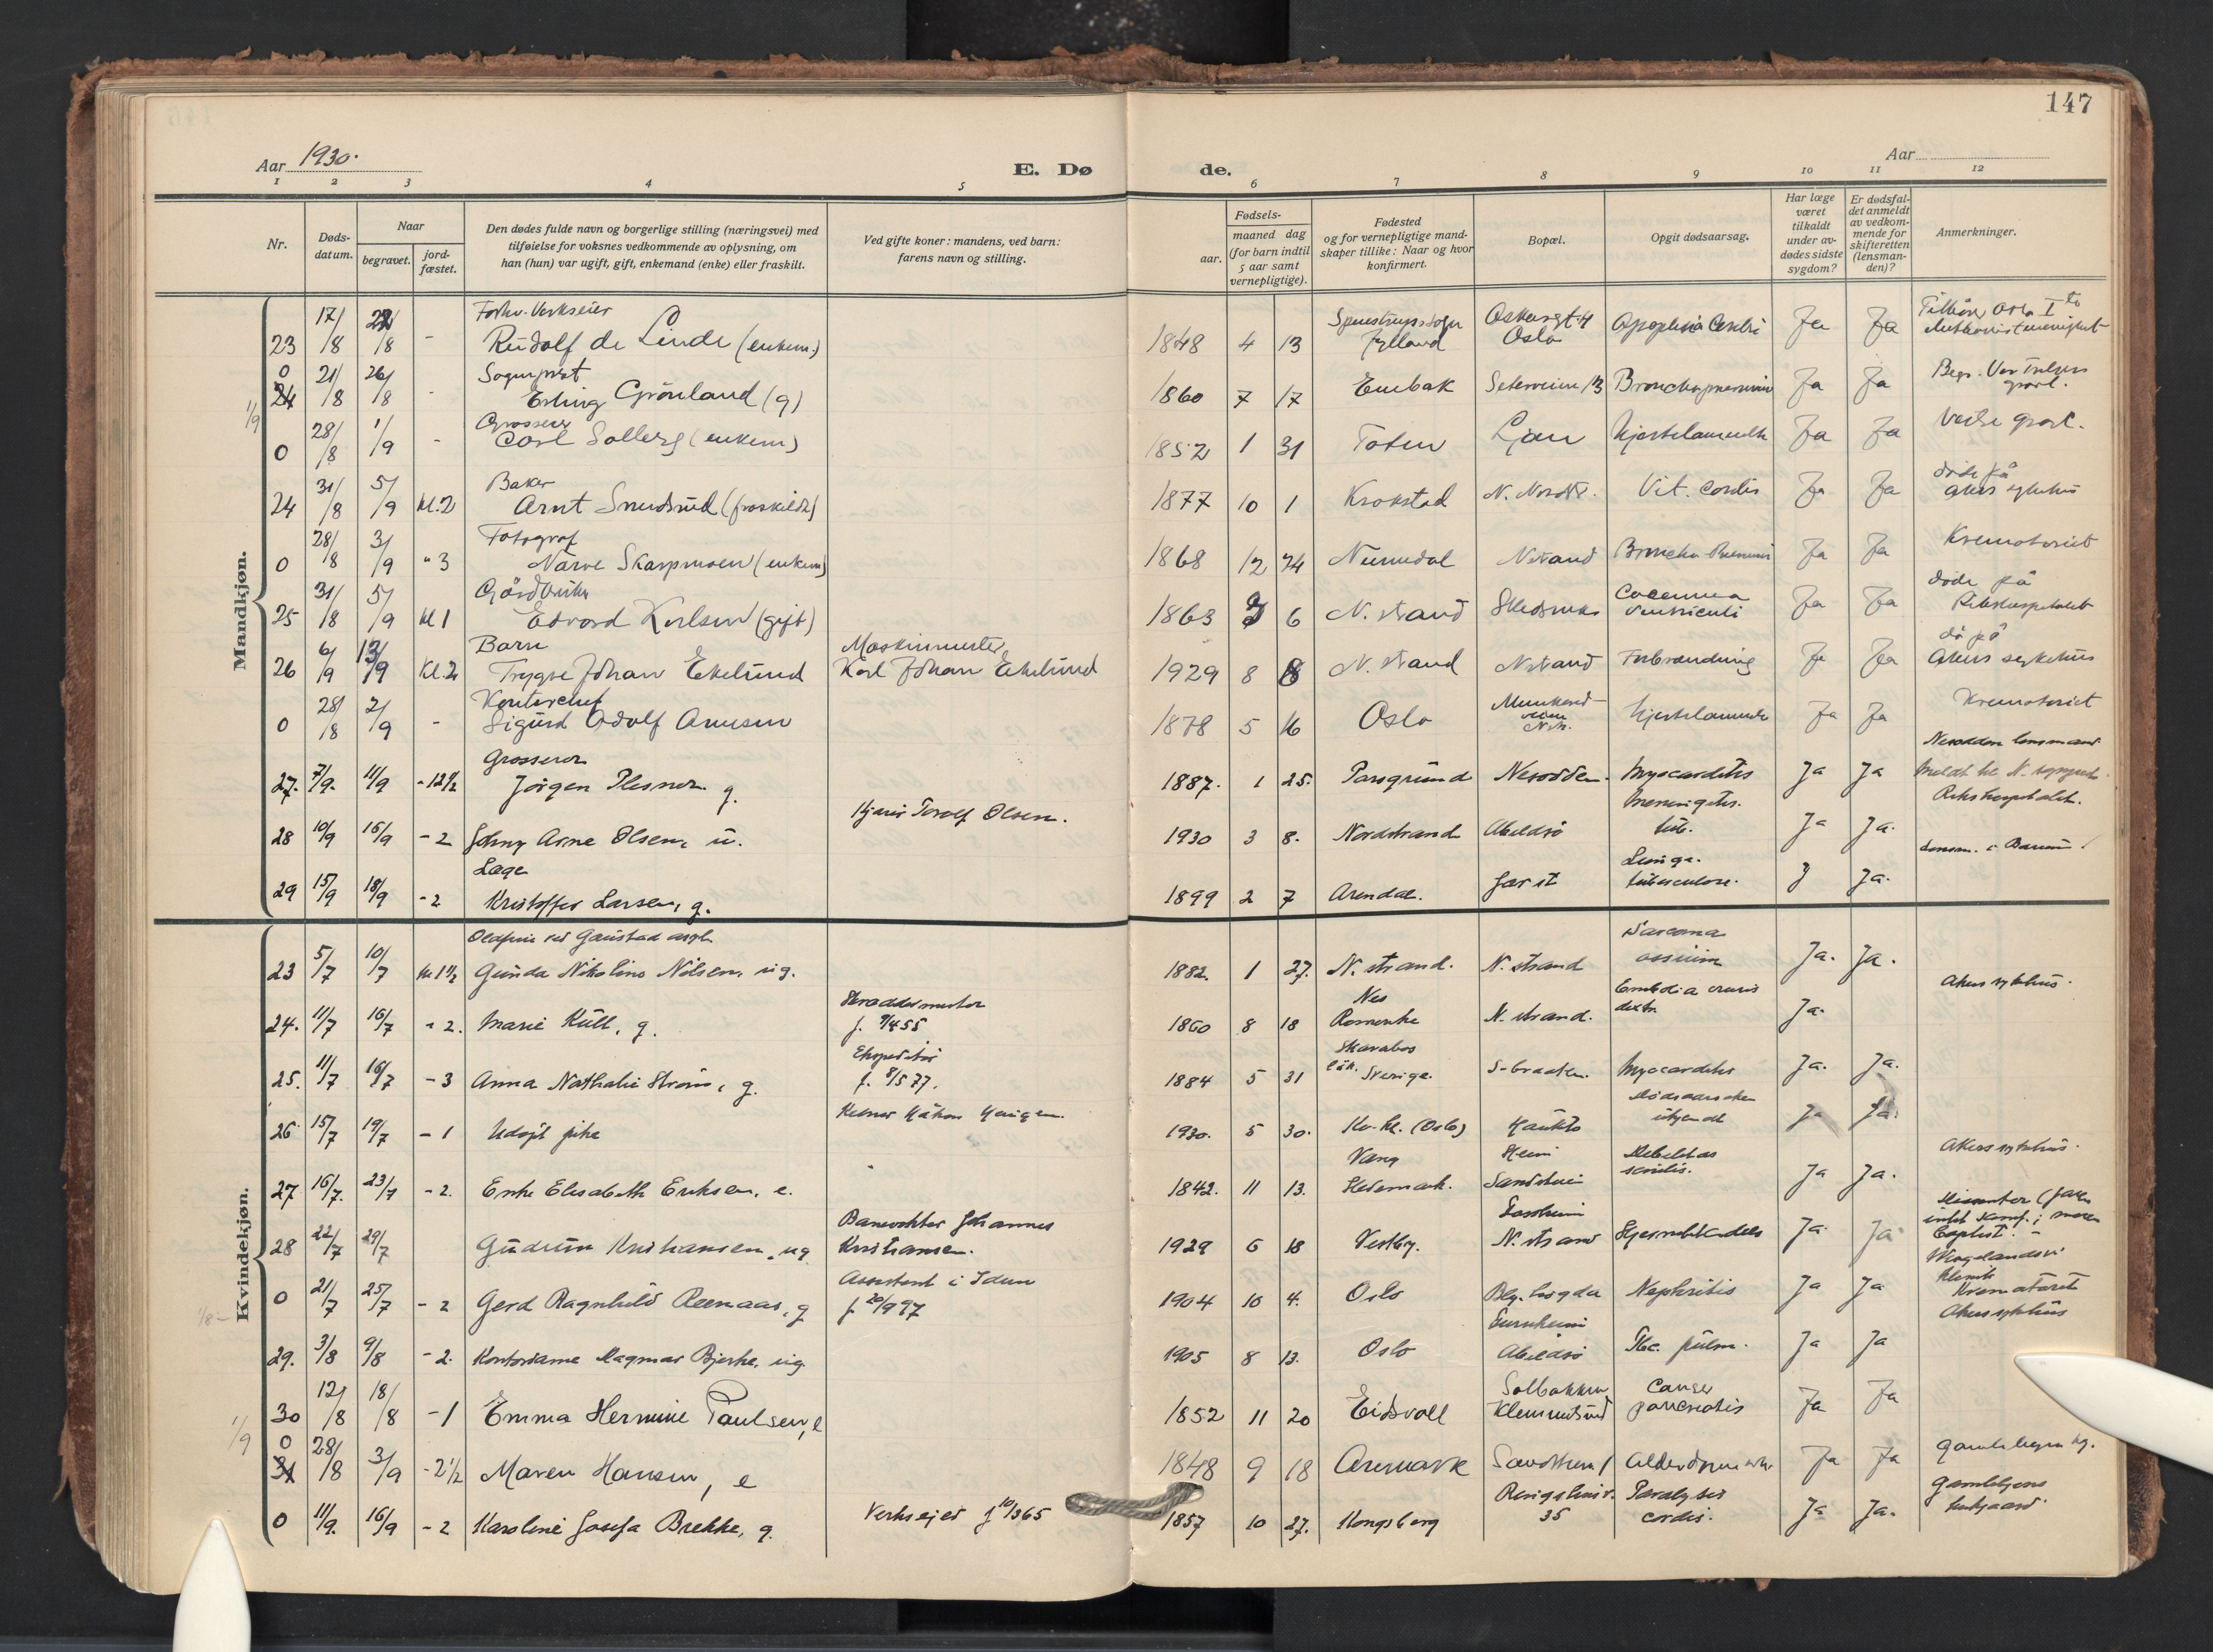 147
Aar 1930.
E. Dø
de.
Aar
1 2 3 4 5 6 7 8 9 10 11 12
Nr.
Døds-
datum.
Naar
begravet.
jord-
fæstet.
Den dødes fulde navn og borgerlige stilling (næringsvei) med
tilføielse for voksnes vedkommende av oplysning, om
han (hun) var ugift, gift, enkemand (enke) eller fraskilt.
Ved gifte koner: mandens, ved barn:
farens navn og stilling.
Fødsels-
aar.
maaned dag
(for barn indtil
5 aar samt
vernepligtige).
Fødested
og for vernepligtige mand-
skaper tillike: Naar og hvor
konfirmert.
Bopæl.
Opgit dødsaarsag.
Har læge
været
tilkaldt
under av-
dødes sidste
sygdom?
Er dødsfal-
det anmeldt
av vedkom-
mende for
skifteretten
(lensman-
den)?
Anmerkninger.
Mandkjøn.
23 17/8 22/8 - Forhv. Verkseier
Rudolf de Linde (enkem.) 1848 4 13 Jylland Oskarsgt 4 Oslo Ja Ja
0 24 21/8 26/8 - Sogneprest
Erling Grönland (g) 1860 7 17 Enebak Seterveien 13 Ja Ja
1/9
0 28/8 1/9 - Grosserer
Carl Solberg (enkem) 1852 1 31 Toten Ljan Hjertelammelse Ja Ja Vestre gravl.
24 31/8 5/9 Kl. 2 Baker
Arnt Snudsrud (fraskildt) 1877 10 1 Krokstad N. Nordstr. Vit. cordis Ja Ja döde på Akers sykehus
0 28/8 3/9 " 3 Fotograf
Narve Skarpmoen (enkem) 1868 12 24 Numedal N strand Ja Ja Krematoriet
25 31/8 5/9 Kl 1 Gårdbruker
Edvard Karlsen (gift) 1863 6 N. strand ventriculi Ja Ja döde på Rikshospitalet
26 6/9 13/9 Kl. 2 Barn
Trygve Johan Ekelund Maskinmester
Karl Johan Ekelund 1929 8 8 N. strand N strand Forbrænding Ja Ja dö på Akers sykehus
0 28/8 2/9 - Kontorchef
Sigurd Adolf Arnesen 1878 5 16 Oslo Hjertelammelse Ja Ja Krematoriet
27. 7/9. 11/9 - 12 1/2 Grosserer
Jörgen Plesner. g. 1887. 1 25. Porsgrund Nesodden. Myocarditis Ja Ja Nesodden lensmand
28 10/9 16/9 - 2 Johny Arne Olsen, u. Hjalmar Toralf Olsen. 1930 3 8. Nordstrand Abildsö Meningitis. tub. Ja Ja. Rikshospitalet.
29 15/9 18/9 - 2 Læge
Kristoffer Larsen, g. 1899 2 7 Arendal. Lunge-
tuberculose. J Ja. Lensm. i Bærum
Kvindekjøn.
23 5/7 10/7 Kl 1 1/2 Oldfrue ved Gaustad asyl.
Gunda Nikoline Nilsen, ug. 1882. 1 27. N. strand. N. strand Sarcoma
ossium Ja. Ja.
24. 11/7 16/7 - 2. Marie Kull, g. Skræddermester
f. 9/4 55 1860 8 18 Nes
Romerike N. strand. Embolia cruris
dextr. Ja. Akers sykehus.
25. 11/7 16/7 - 3 Anna Nathalie Ström, g. Ekspeditör
f. 8/5 77. 1884 5 31 Skaraborgs
län. Sverige. S-braaten. Myocarditis Ja. Ja.
26 15/7 19/7 - 1 Udöpt pike Kelner Håkon 1930. 5 30. Kv. kl. (Oslo) Hauketo Dödsaarsaken
ukjendt Ja Ja.
27 16/7. 23/7 - 2. Enke Elisabeth Eriksen, e. 1842. 11 13. Vang
Hedemark. Heim
Sandstuvn Debilitas
senilis. Ja Ja. Akers sykehus.
28 22/7 29/7 Gudrun Kristiansen, ug Banevokter Johannes
Kristiansen. 1929 6 18 Vestby. Solheim
N. strand Ja. Ja Dissenter (faren
baptist.
1/8 -
0 21/7 25/7 - 2 Gerd Ragnhild Reenaas, g Assistent i Idun
f 20/9 97 1904 10 4. Oslo Nephritis Ja Ja klinik
Krematoriet
29. 3/8 9/8 - 2. Kontordame Dagmar Bjerke, ug 1905 8 13. Oslo Furuheim
Abildsö Tbc. pulm. Ja Ja Akers sykehus
30 12/8 18/8 - 1 Emma Hermine Paulsen, e 1852 11 20 Eidsvoll Solbakken
Klemetsrud Cancer
pancreatis Ja Ja
1/9
0 31 28/8 3/9 - 2 1/2 Maren Hansen, e 1848 9 18 Aremark Ja Ja
0 11/9. 16/9 - 2 Karoline Josefa Brekke, g. Verkseier f 10/3 65 1857 10 27. Kongsberg Ringshusv.
35 Paralysis
cordis. Ja Ja. Gamlebyens
kirkegaard.